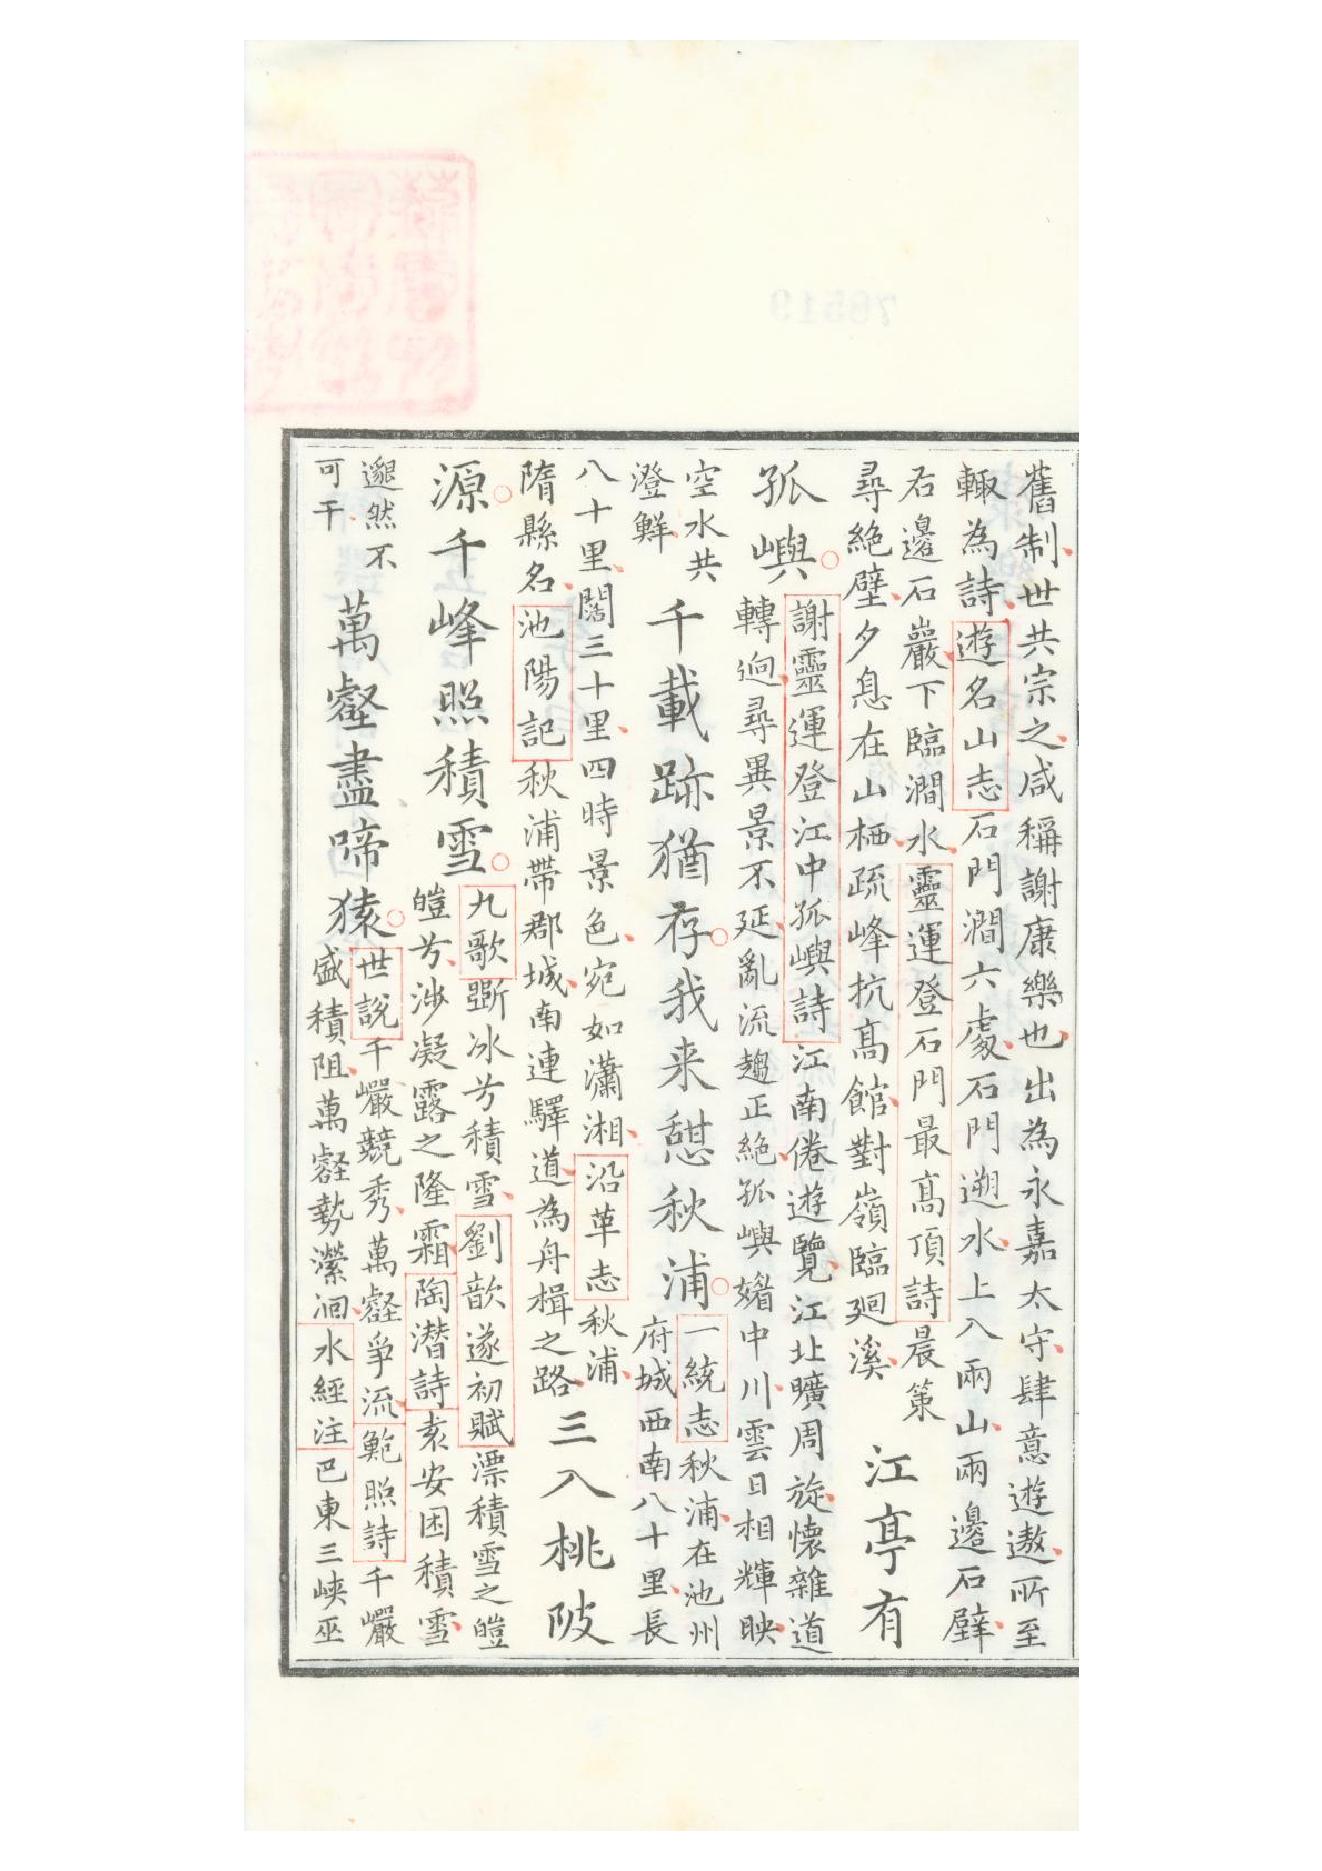 舊制世共宗之咸稱謝康樂也出為永嘉太守肆意遊遨所至
輙為詩遊名山志石門澗六處石門遡水上入兩山兩邊石壁
右邊石巖下臨澗水靈運登石門最髙頂詩晨策
尋絶壁夕息在山栖疏峰抗髙館對嶺臨廻溪
江亭有
孤嶼
謝靈運登江中孤嶼詩江南倦遊覽江北曠周旋懐雜道
轉逈尋異景不延亂流趨正絶孤嶼媚中川雲日相輝映
空水共
澄鮮
千載跡猶存我来憇秋浦
一統志秋浦在池州
府城西南八十里長
八十里闊三十里四時景色宛如瀟湘沿革志秋浦
隋縣名池陽記秋浦帶郡城南連驛道為舟楫之路
三入桃陂
源千峰照積雪
九歌斵冰兮積雪劉歆遂初賦漂積雪之皚
皚兮涉凝露之隆霜陶潛詩袁安困積雪
邈然不
可干
萬壑盡啼猿
世說千巖競秀萬壑爭流鮑照詩千巖
盛積阻萬壑勢瀠洄水經注巴東三峽巫